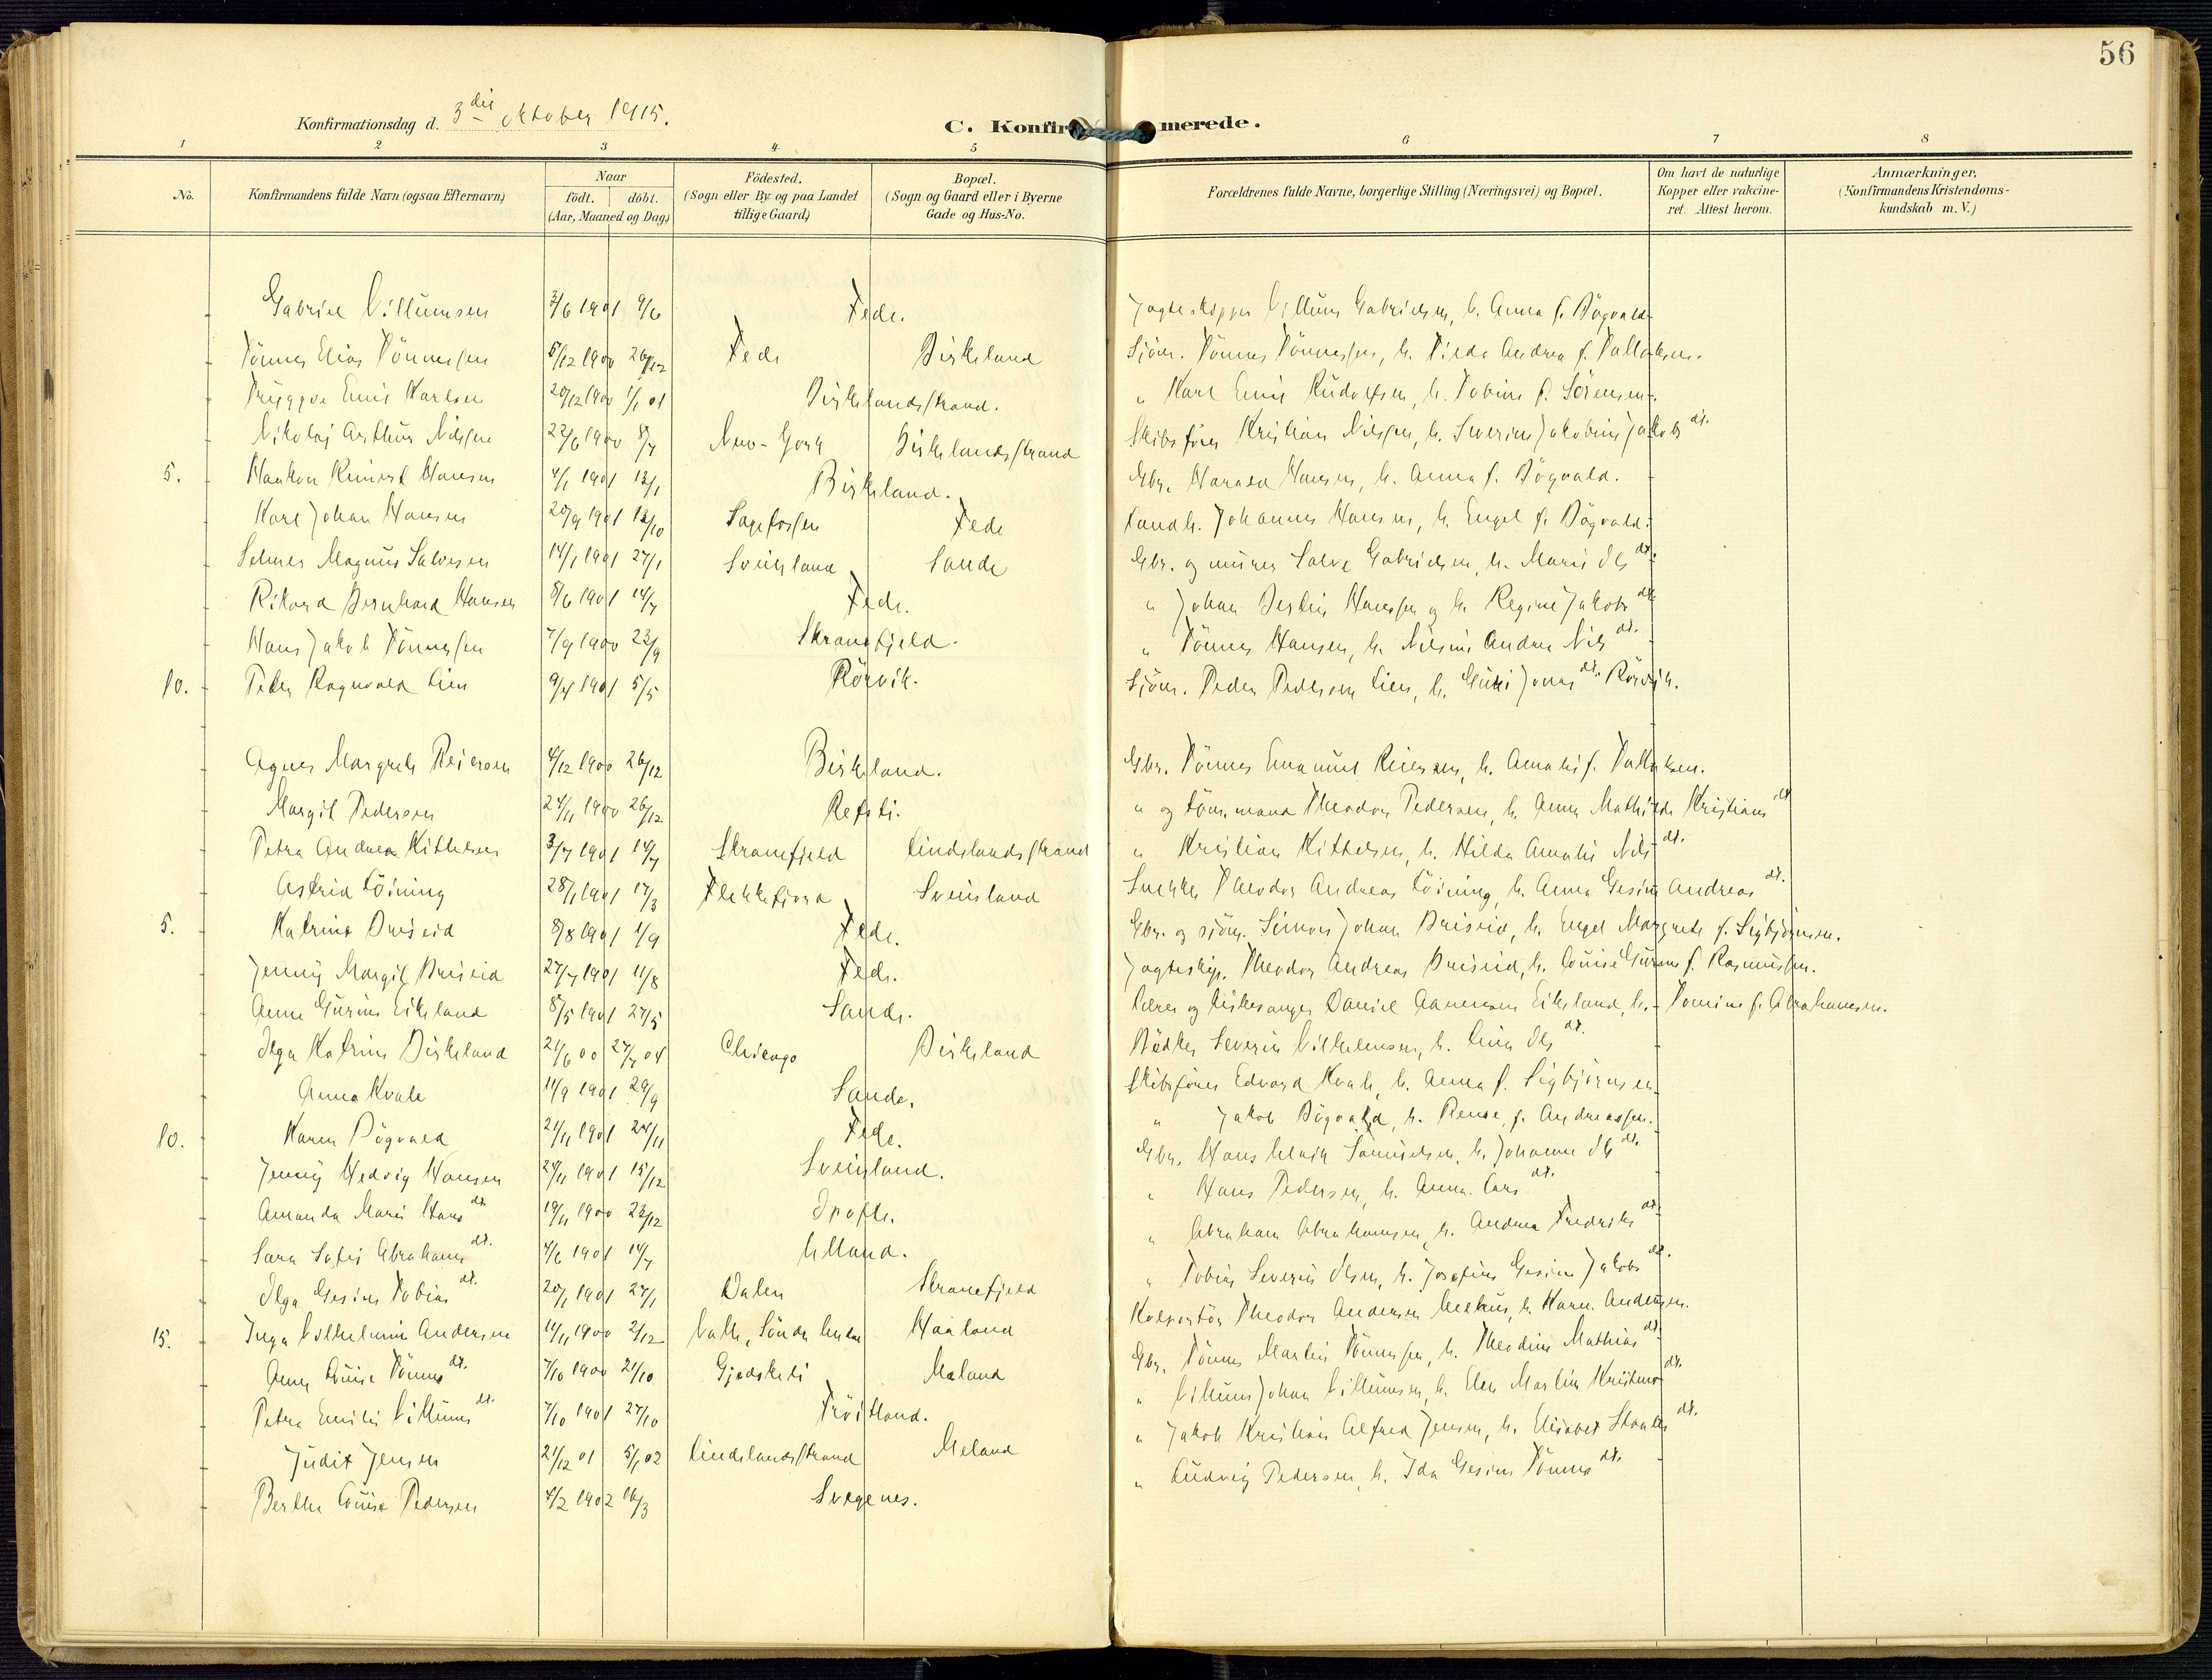 56
Konfirmationsdag d. 3die oktober 1915.
C. Konfirmerede.
1 2 3 4 5 6 7 8
No.
Konfirmandens fulde Navn (ogsaa Efternavn)
Naar
födt. döbt.
(Aar, Maaned og Dag)
Födested.
(Sogn eller By og paa Landet
tillige Gaard)
Bopæl.
(Sogn og Gaard eller i Byerne
Gade og Hus-No.
Forældrenes fulde Navne, borgerlige Stilling (Næringsvei) og Bopæl.
Om havt de naturlige
Kopper eller vakcine-
ret. Attest herom.
Anmærkninger,
(Konfirmandens Kristendoms-
kundskab m. V.)
Gabriel Villumsen 3/6 1901 9/6 Fede. Villum Gabrielsen, h. Anna f. Bögvald
Tönnes Elias Tönnessen 5/12 1900 26/12 Fede Birkeland Sjöm. Tönnes Tönnessen, h. Andrea f.
Tryggve Emil Karlsen 20/12 1900 1/1 01 Birkelandsstrand. " Karl Emil Rudolfsen, h. Tobine f. Sörensen.
Nikolai Arthur Nilssen 22/6 1900 8/7 New-York Birkelandsstrand Skibsförer Kristian Nilssen, h. Severine Jakobine Jakobsdt.
5. Haakon Reinert Hansen 4/1 1901 13/1 Birkeland. Gbr. Harald Hansen, h. Anna f. Bögvald.
Karl Johan Hansen 20/9 1901 13/10 Fede Landh. Johannes Hansen, h. Engel f. Bögvald.
Selmer Magnus Salvesen 14/1 1901 27/1 Svindland Sande Gbr. og murer Salve Gabrielsen, h. Marie Olsdt.
Rikard Bernhard Hansen 8/6 1901 14/7 Fede. " Johan Bertin Hanssen og h. Regine Jakobsdt.
Hans Jakob Tönnessen 7/9 1900 23/9 Skranefjeld. " Tönnes Hansen, h. Nilsine Andrea Nilsdt.
10. Peder Ragnvald Lien 9/4 1901 5/5 Rörvik. Sjöm. Peder Pedersen Lien, h. Guri Jonasdt. Rörvik.
Agnes Margrete Reiersen 4/12 1900 26/12 Birkeland. Gbr. Tönnes Emanuel Reiersen, h. Amalie f.
Margit Pedersen 24/11 1900 26/12 Refsti. " og tömmermand Theodor Pedersen, h. Anna Mathilde Kristiansdt.
Petra Andrea Kittelsen 3/7 1901 14/7 Skranefjeld Lindelandsstrand " Kristian Kittelsen, h. Hilda Amalie Nilsdt.
Astrid Löining 28/1 1901 17/3 Flekkefjord Svindland Snekker Theodor Andreas Löining, h. Anna Gesine Andreasdt.
5. Katrine Briseid 8/8 1901 1/9 Fede. Gbr. og sjöm. Simon Johan Briseid, h. Engel Margrete f. Sigbjörnsen.
Jenny Margit Briseid 27/7 1901 11/8 Fede. Jagteskip. Theodor Andreas Briseid, h. Louise Gurine f. Rasmussen.
Anne Gurine Eikeland 8/5 1901 27/5 Sande. Lærer og kirkesanger Daniel Aanensen Eikeland, h. Tomine f. Abrahamsen.
Olga Katrine Birkeland 21/6 00 24/7 04 Chicago Birkeland Bödker Severin Vilhelmsen, h. Lina Olsdt.
Anna Kvale 14/9 1901 29/9 Sande. Skibsförer Edvard Kvale, h. Anna f. Sigbjörnsen
10. Karen Bögvald 21/11 1901 24/11 Fede. " Jakob Bögvald, h. f. Andreassen.
Jenny Hedvig Hansen 24/11 1901 15/12 Svindland. Gbr. Hans Samuelsen, h. Johanne Olsdt.
Amanda Marie Hansdt. 19/11 1900 23/12 " Hans Pedersen, h. Anna Larsdt.
Sara Sofie Abrahamsdt. 4/6 1901 14/7 Ulland. " Abraham Abrahamsen, h. Andrea Fredriksdt.
Olga Gesine Tobiasdt. 20/1 1901 27/1 Dalen Skranefjeld " Tobias Severin Olsen, h. Josefine Gesine Jakobsdt.
15. Inga Vilhelmine Andersen 14/11 1900 2/12 Valle, Haaland Kolportör Theodor Andersen, h. Karen Andersen.
Anna Louise Tönnesdt. 7/10 1900 21/10 Meland Gbr. Tönnes Martin Tönnessen, h. Theodine Mathiasdt.
Petra Emilie Villumsdt. 7/10 1901 27/10 Tröitland. " Villum Johan Villumsen, h. Elen Martine
Judit Jensen 21/12 01 5/1 02 Lindelandsstrand Meland " Jakob Kristian Alfred Jensen, h. Elisabet
Berthe Louise Pedersen 4/2 1902 16/3 Svegenes. " Ludvig Pedersen, h. Ida Gesine Tönnesdt.